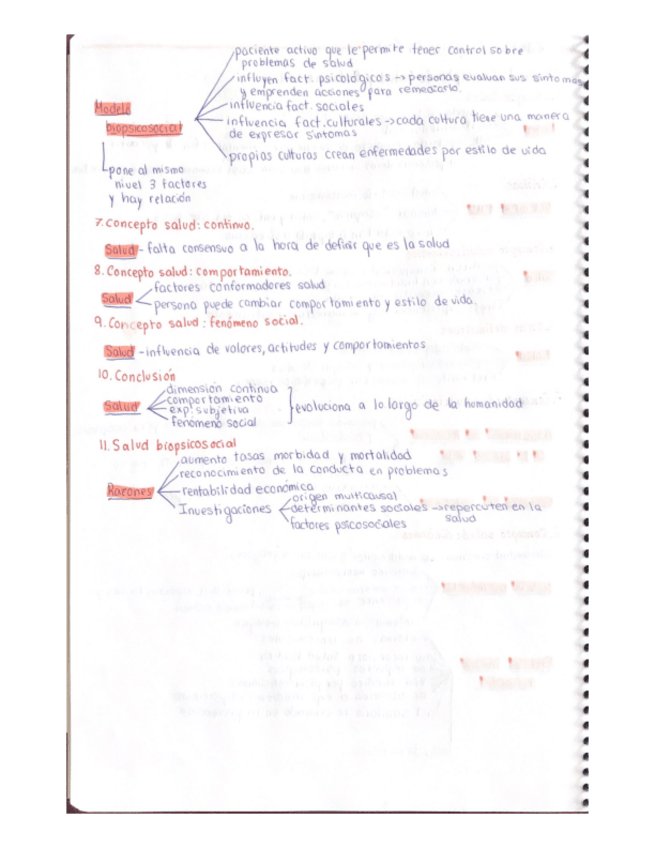 paciente activo que le permite tener control sobre
problemas de salud
influyen fact. psicológicos → personas evaluan sus sintomas
y emprenden acciones para remediarlo.
Modelo
biopsicosocial
influencia fact. sociales
influencia fact. culturales → cada cultura tiene una manera
de expresar sintomas
propias culturas crean enfermedades por estilo de vida
pone al mismo
nivel 3 factores
y hay relación
7. Concepto salud: continuo.
Salud - falta consensuo a la hora de definir que es la salud
8. Concepto salud: comportamiento.
factores conformadores salud
Salud
persona puede cambiar comportamiento y estilo de vida.
9. Concepto salud: fenómeno social.
Salud - influencia de valores, actitudes y comportamientos
10. Conclusión
dimensión continua
comportamiento
Salud
exp. subjetiva
evoluciona a lo largo de la humanidad
fenomeno social
11. Salud biopsicosocial
aumento tasas morbidad y mortalidad
reconocimiento de la conducta en problemas
Razones
rentabilidad económica
Investigaciones
origen multicausal
determinantes sociales → repercuten en la
salud
factores psicosociales